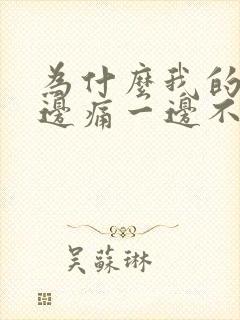 為什麼我的
邊痛一邊不
吳蘇琳